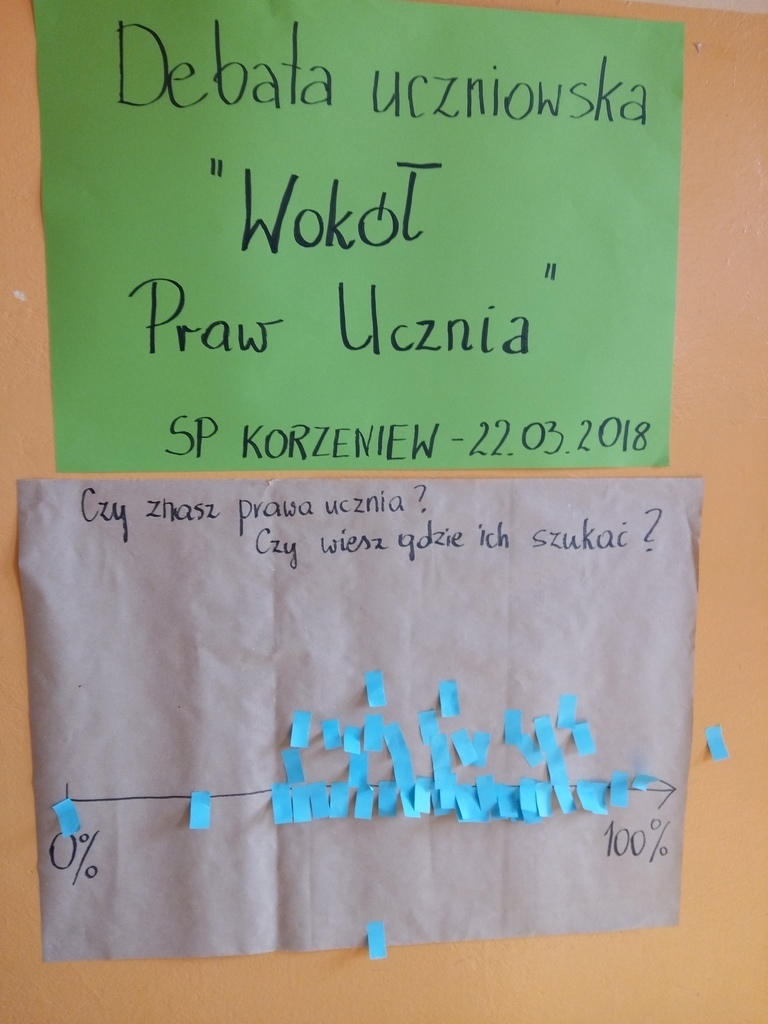 Debata uczniowska
"Wokół
Praw Ucznia"
SP KORZENIEW - 22.03.2018
Czy znasz prawa ucznia?
Czy wiesz gdzie ich szukać?
0%
100%